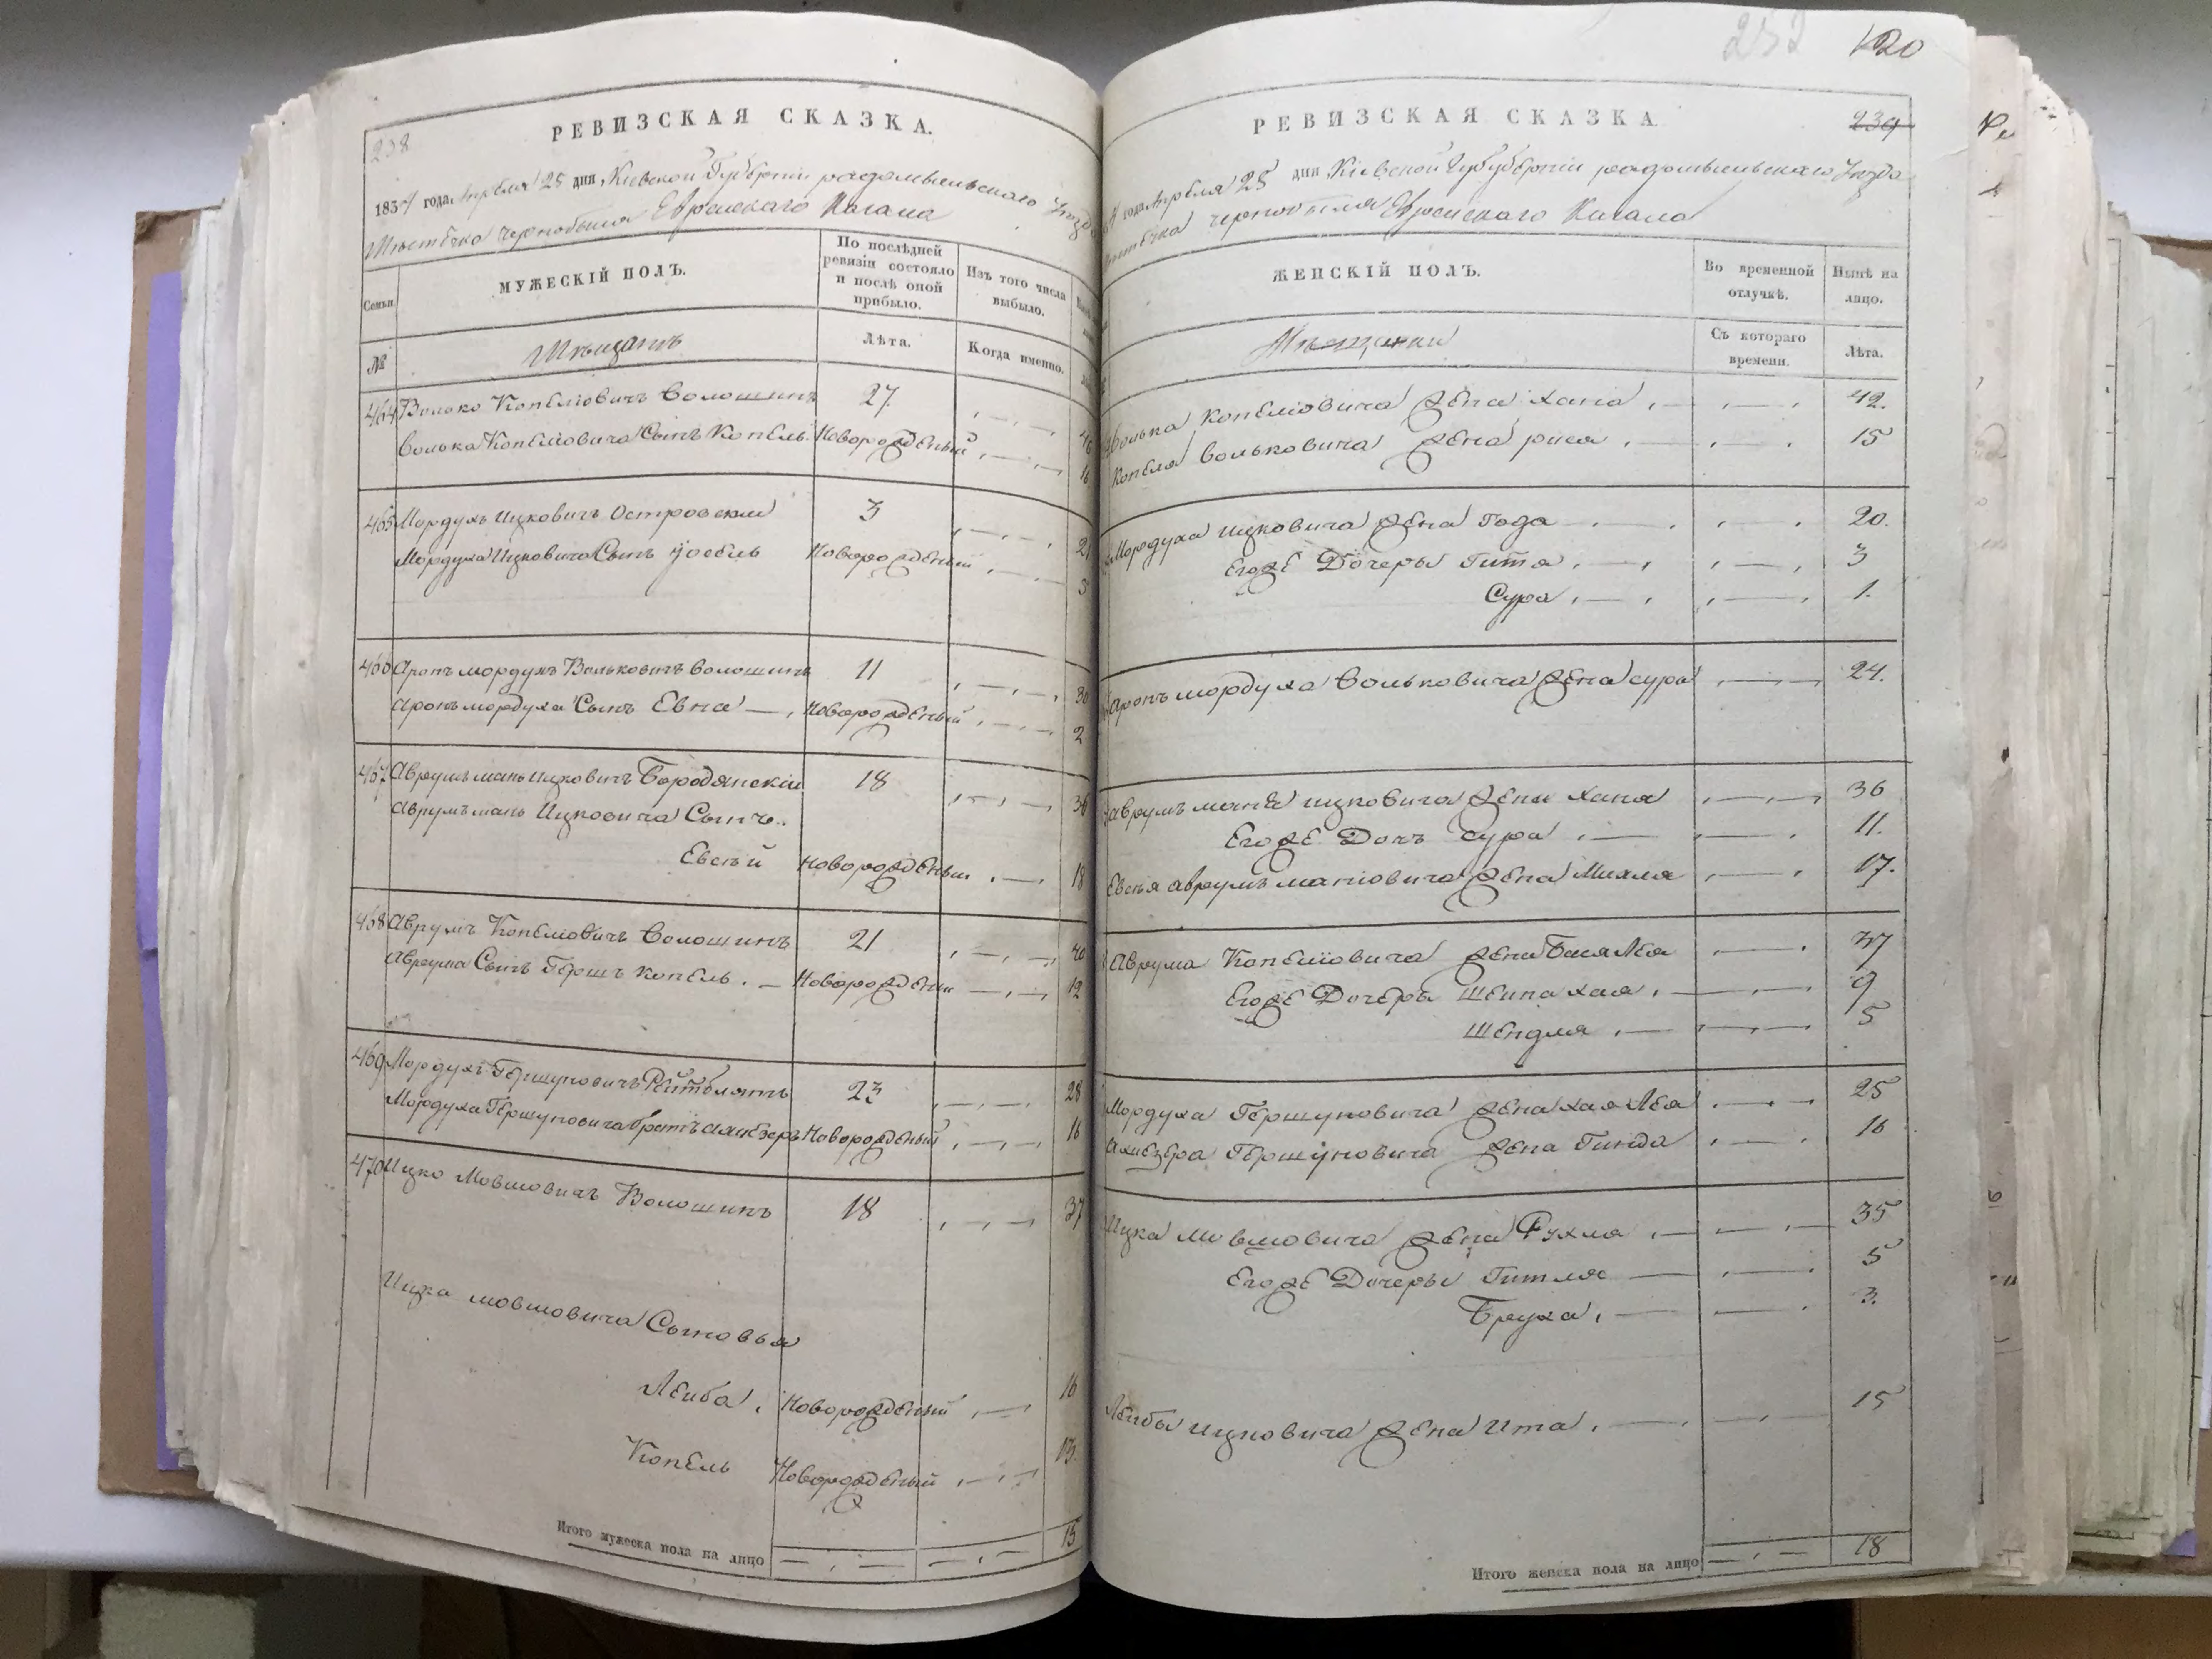 238
РЕВИЗСКАЯ СКАЗКА.
1834 года Апреля 25 дня, Кіевской Губерніи радомысльскаго Уезда
Местечка Чернобыля Еврейскаго Кагала
Семьи
МУЖЕСКІЙ ПОЛЪ.
По послѣдней ревизіи состояло и послѣ оной прибыло.
Изъ того числа выбыло.
№
Мещанъ
Лѣта.
Когда именно.
464 Волько Копелiовичъ Волошинъ 27
Волька Копелiовича Сынъ Копель. Новорожденый 16
465 Мордухъ Ицковичъ Островскій 3 21
Мордуха Ицковича Сынъ Иосель Новорожденый 3
466 Аронъ мордухъ Вольковичъ Волошинъ 11 30
Аронъ мордуха Сынъ Евна Новорожденый 2
467 Аврумъ мань Ицковичъ Бородянскій 18 36
Аврумъ мань Ицковича Сынъ
Евсѣй Новорожденый 18
468 Аврумъ Копелiовичъ Волошинъ 21 40
Аврума Сынъ Гершъ Копель. Новорожденый 12
469 Мордухъ Гершуновичъ 23 28
Мордуха Гершуновича братъ Алиезеръ Новорожденый 16
470 Ицко Мовшовичъ Волошинъ 18 37
Ицка мовшовича Сыновья
Лейба, Новорожденый 16
Копель Новорожденый 13
Итого мужеска пола на лицо 15
252 120
РЕВИЗСКАЯ СКАЗКА
239
года Апреля 25 дня Кіевской Губерніи радомысльскаго Уезда
Чернобыля Еврейскаго Кагала
ЖЕНСКІЙ ПОЛЪ.
Во временной отлучкѣ.
Нынѣ на лицо.
Мещанки
Съ котораго времени.
Лѣта.
Волька Копелiовича жена Хана 42.
Копеля Вольковича жена рися 15
Мордуха Ицковича жена Года 20.
Егоже Дочеры Гитя 3
Сура 1.
Аронъ мордуха Вольковича жена сура 24.
Аврумъ маня ицковича жена Хана 36
Егоже Дочь Сура 11.
Евсѣя аврумъ манiовича жена Михля 17.
Аврума Копелiовича жена Бася Лея 37
Егоже Дочеры Шейна хая 9
Шендля 5
Мордуха Гершуновича жена хая Лея 25
Алиезера Гершуновича жена Гинда 16
Ицка мовшовича жена Рухля 35
Егоже Дочеры Гитля 5
Бруха 3.
Лейбы ицковича жена Ита 15
Итого женска пола на лицо 18